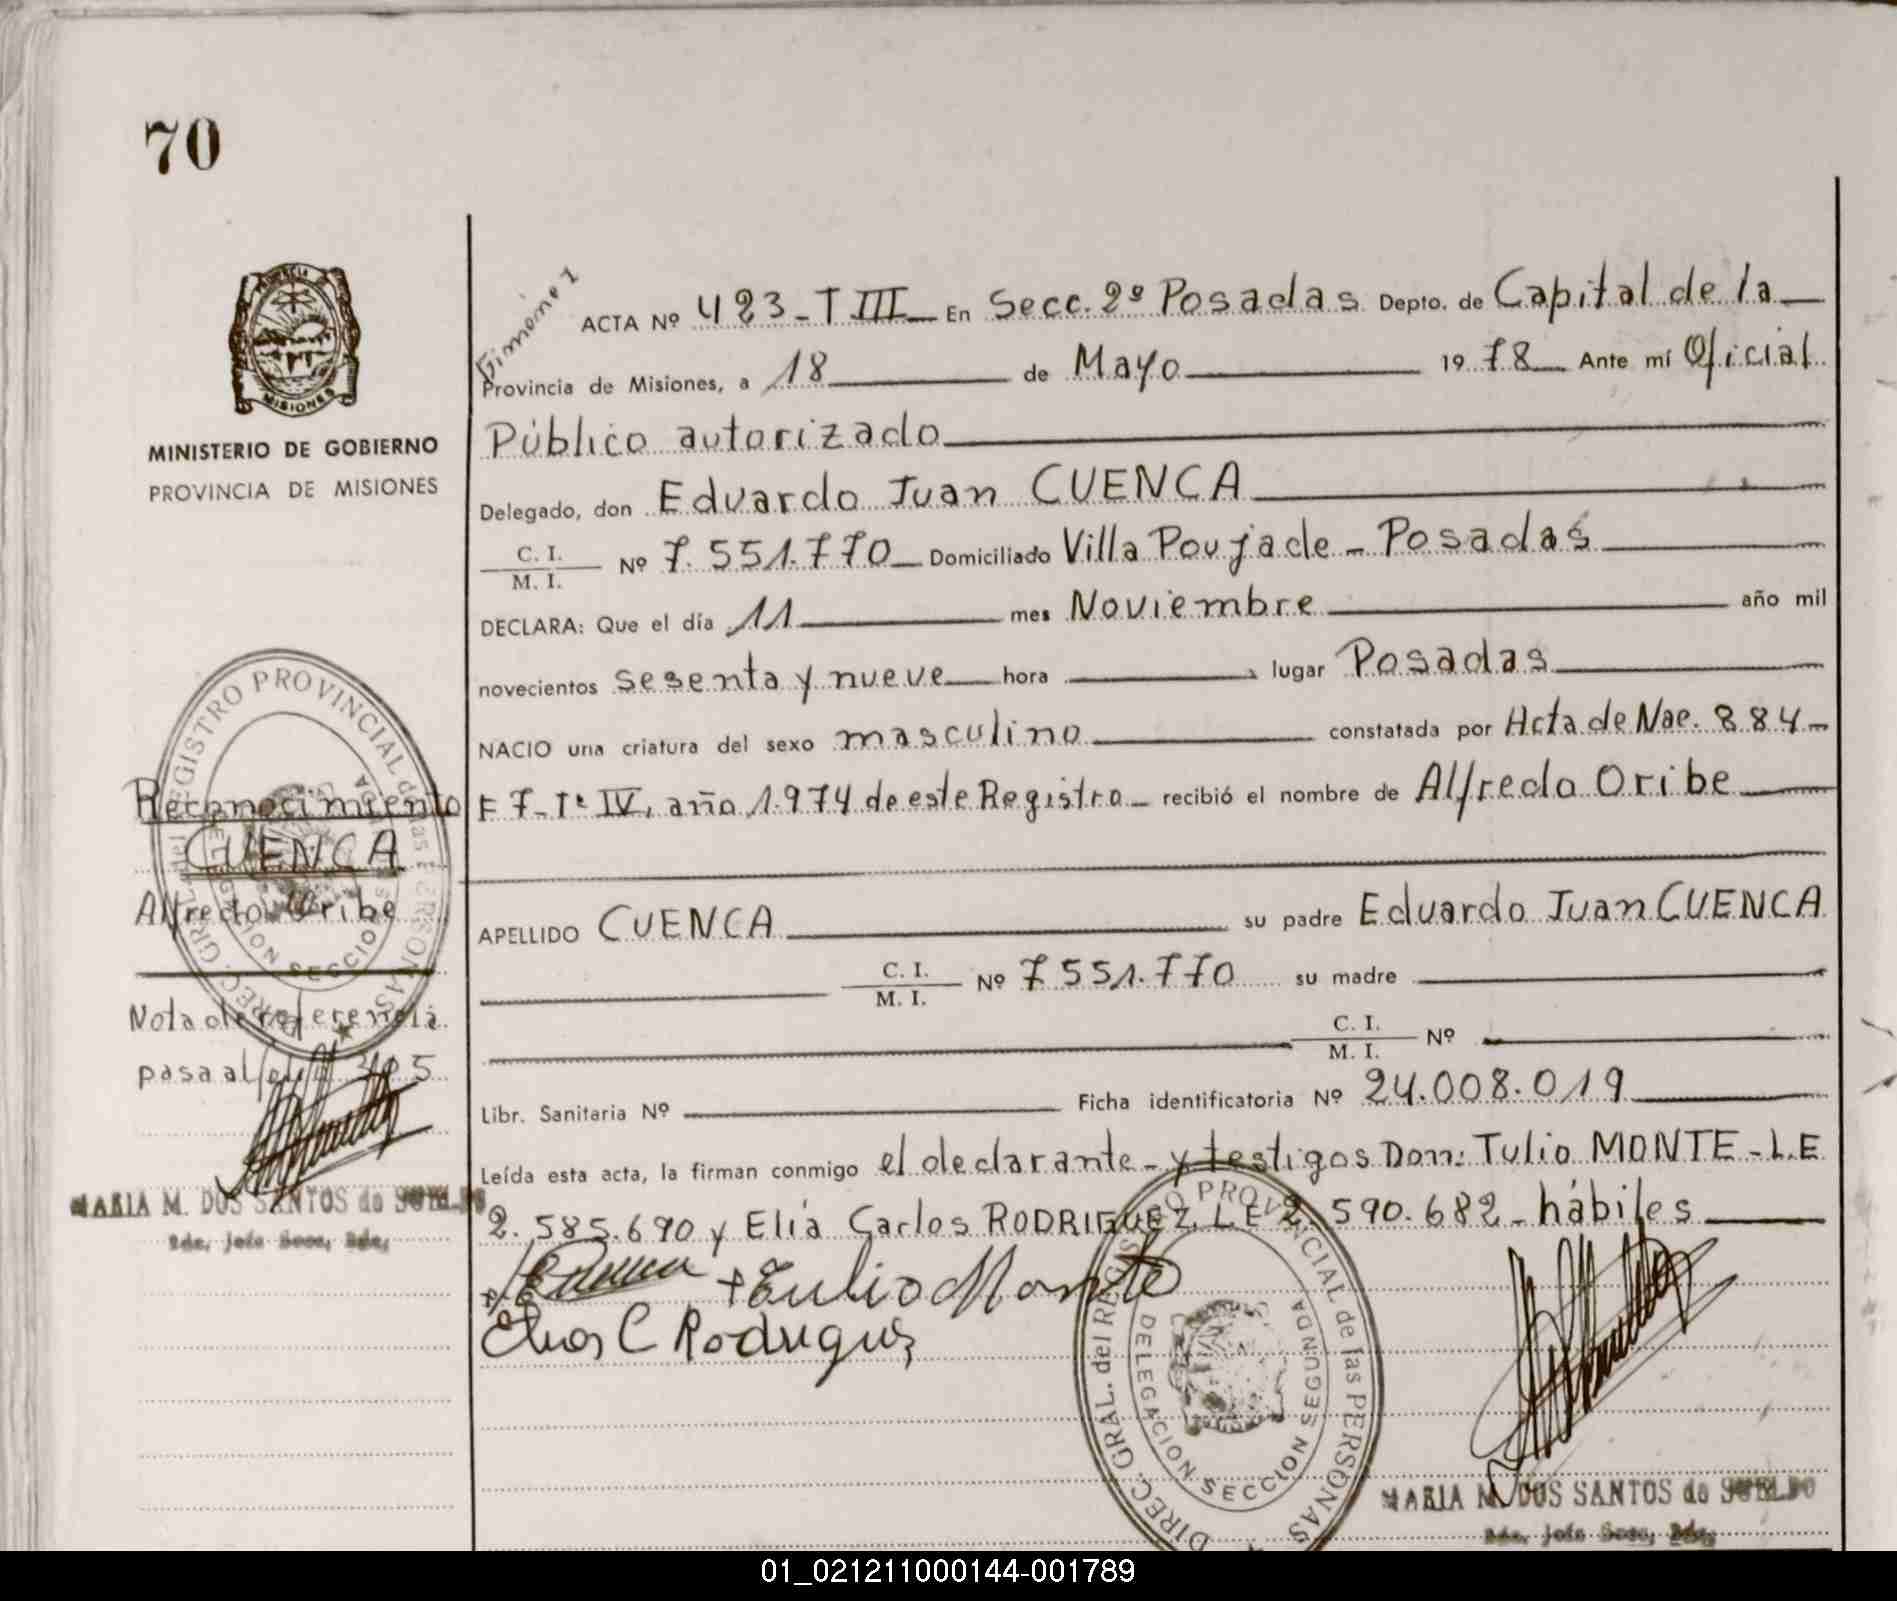 70
Gimenez
ACTA Nº 423-T III En Secc. 2º Posadas Depto. de Capital de la
Provincia de Misiones, a 18 de Mayo 1978 Ante mí Oficial
Público autorizado
Delegado, don Eduardo Juan CUENCA
C. I.
M. I.
Nº 7.551.770 Domiciliado Villa Poujade - Posadas
DECLARA: Que el día 11 mes Noviembre año mil
novecientos sesenta y nueve hora lugar Posadas
NACIO una criatura del sexo masculino constatada por Acta de Nac. 884-
F 7-Tº IV, año 1.974 de este Registro - recibió el nombre de Alfredo Oribe
APELLIDO CUENCA su padre Eduardo Juan CUENCA
C. I.
M. I.
Nº 7551.770 su madre
C. I.
M. I.
Nº
Libr. Sanitaria Nº Ficha identificatoria Nº 24.008.019
Leída esta acta, la firman conmigo el declarante - y testigos Don: Tulio MONTE - L.E
2.585.690 y Elia Carlos RODRIGUEZ L E 2.590.682 - hábiles
+ Tulio Monte
Elias C Rodriguez
DIREC. GRAL. del REGISTRO PROVINCIAL de las PERSONAS
DELEGACION SECCION SEGUNDA
MARIA M. DOS SANTOS de SUELDO
MISIONES
MINISTERIO DE GOBIERNO
PROVINCIA DE MISIONES
DIREC. GRAL. del REGISTRO PROVINCIAL de las PERSONAS
DELEGACION SECCION SEGUNDA
Reconocimiento
CUENCA
Alfredo Oribe
Nota de referencia
pasa al
MARIA M. DOS SANTOS de SUELDO
01_021211000144-001789